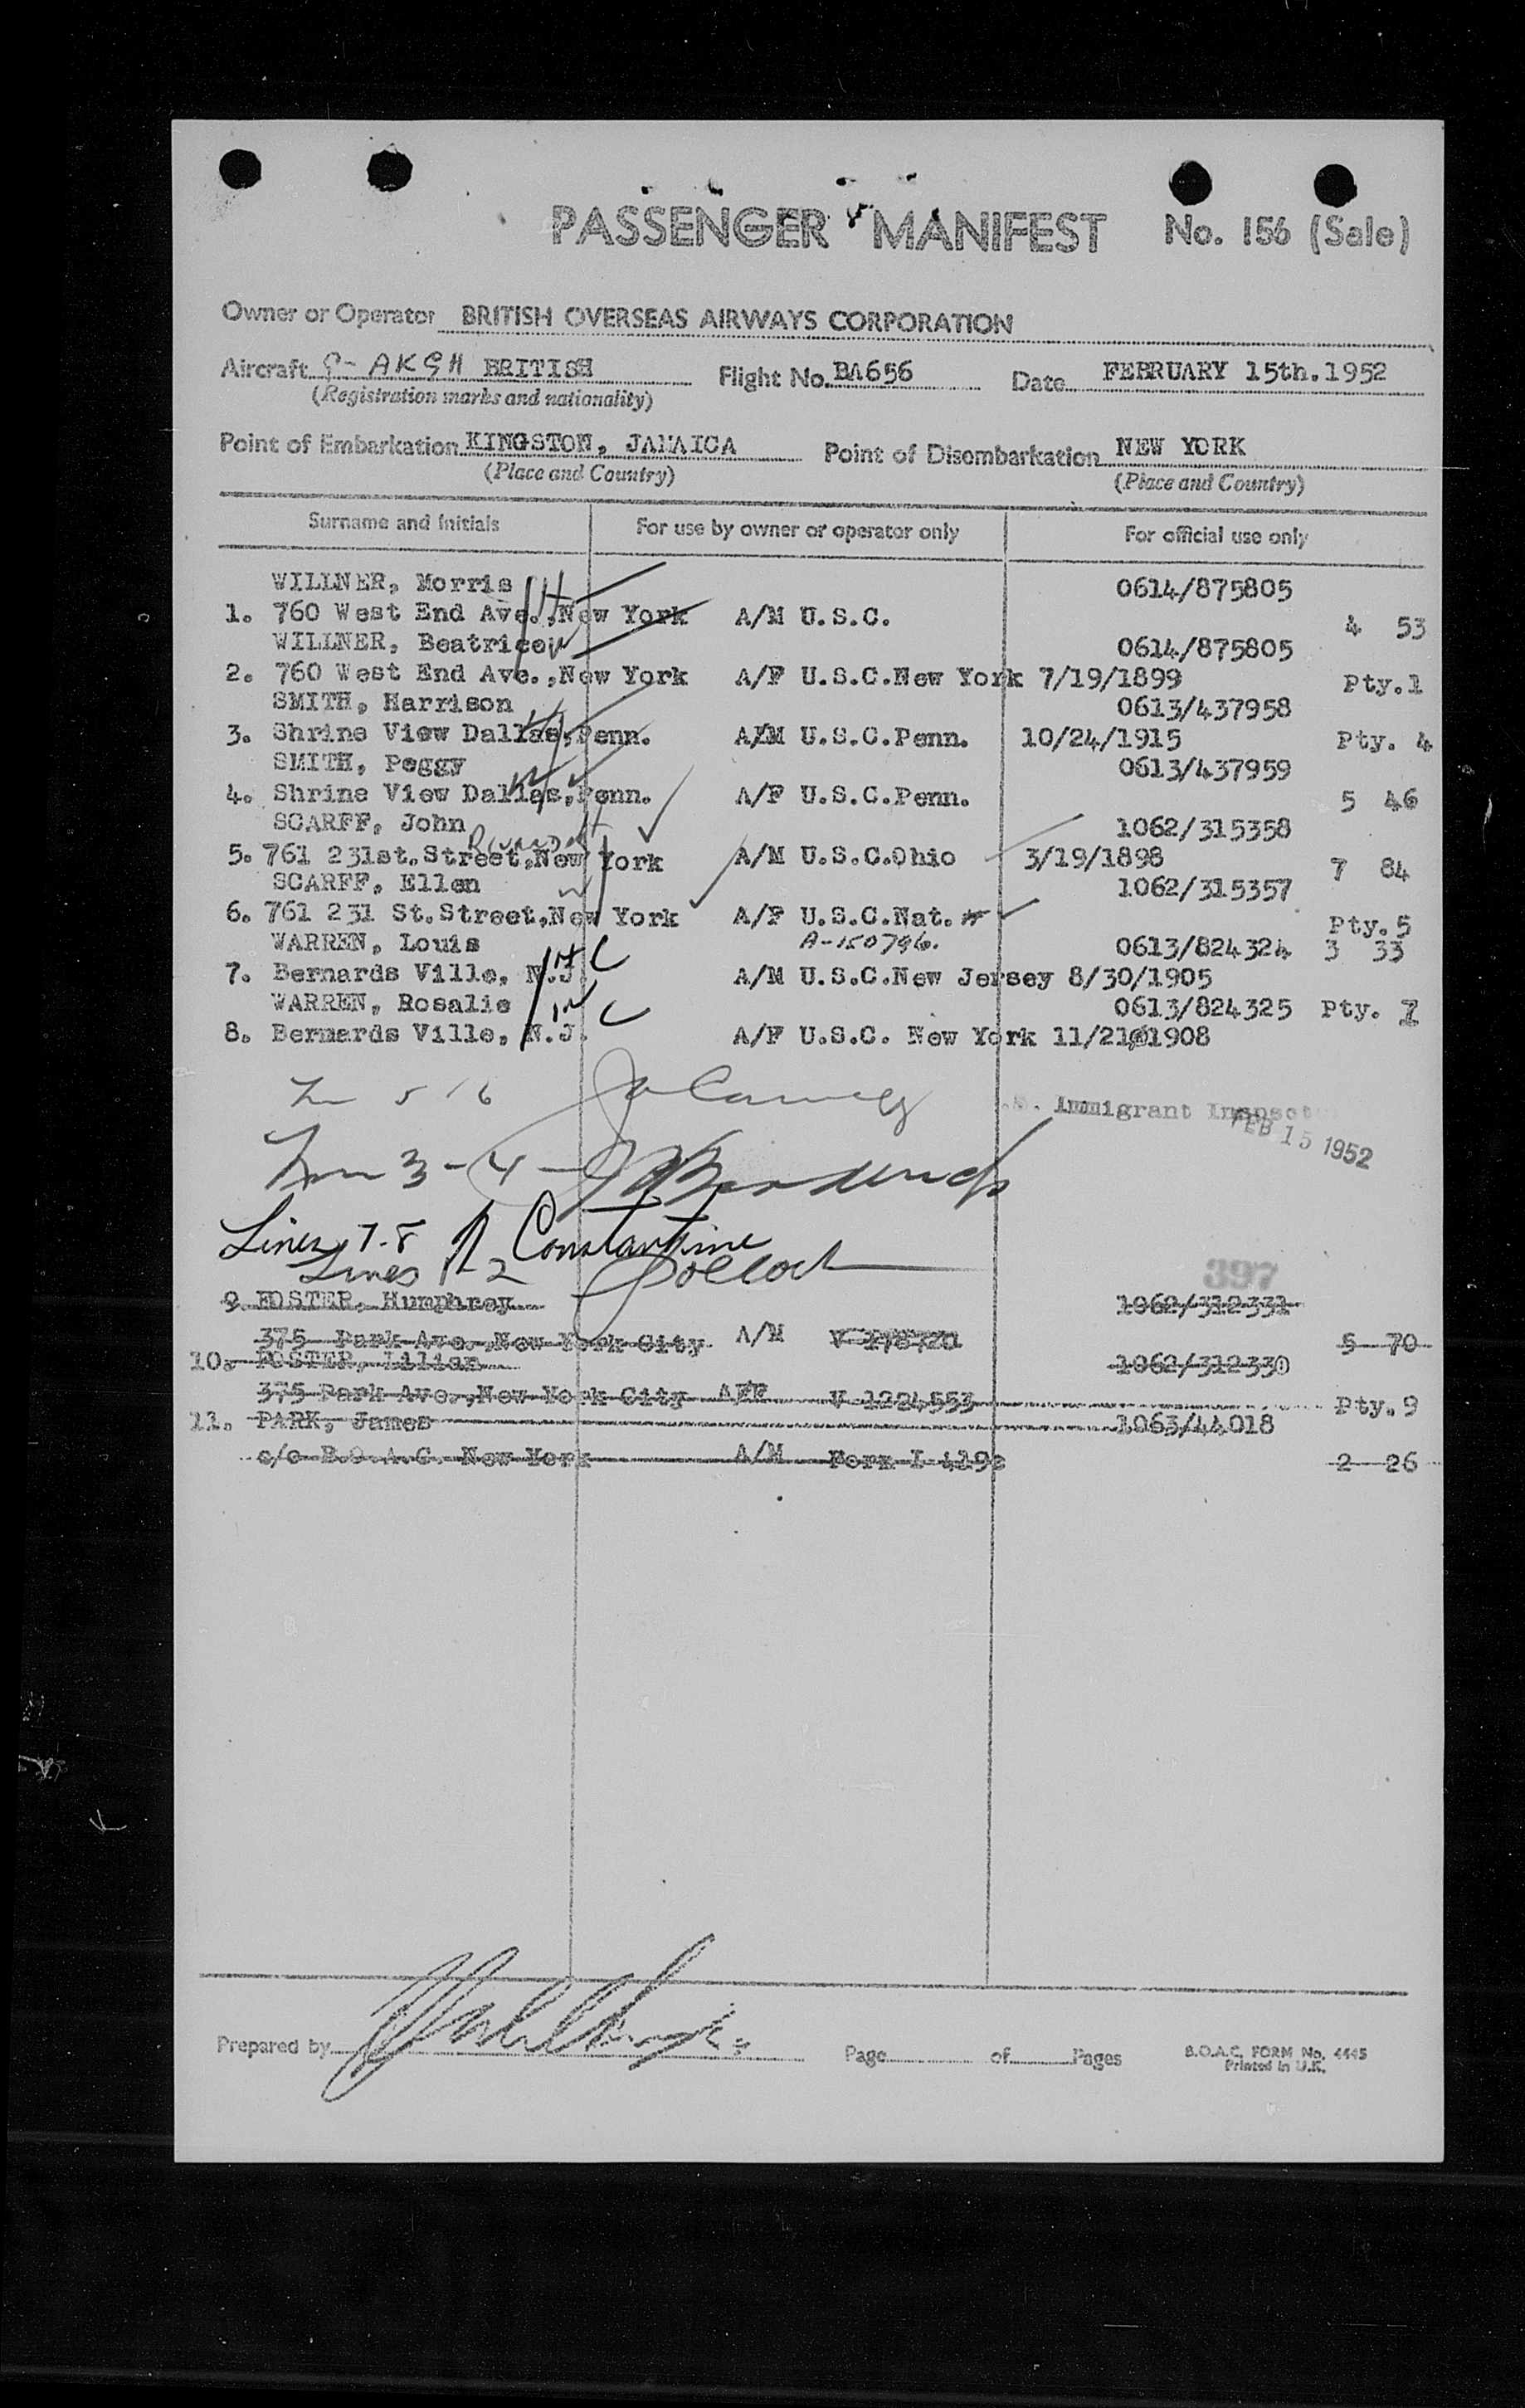 PASSENGER MANIFEST No. 156 (Sale)
Owner or Operator BRITISH OVERSEAS AIRWAYS CORPORATION
Aircraft G-AKGH BRITISH Flight No. BA656 Date FEBRUARY 15th.1952
(Registration marks and nationality)
Point of Embarkation KINGSTON, JAMAICA Point of Disembarkation NEW YORK
(Place and Country) (Place and Country)
Surname and Initials For use by owner or operator only For official use only
WILLNER, Morris 0614/875805
1. 760 West End Ave.,New York A/M U.S.C. 4 53
WILLNER, Beatrice 0614/875805
2. 760 West End Ave.,New York A/F U.S.C.New York 7/19/1899 Pty.1
SMITH, Harrison 0613/437958
3. Shrine View Dallas,Penn. A/M U.S.C.Penn. 10/24/1915 Pty. 4
SMITH, Peggy 0613/437959
4. Shrine View Dallas,Penn. A/F U.S.C.Penn. 5 46
SCARFF, John 1062/315358
5. 761 231st.Street,New York A/M U.S.C.Ohio 3/19/1898 7 84
SCARFF, Ellen 1062/315357
6. 761 231 St.Street,New York A/F U.S.C.Nat. Pty.5
WARREN, Louis A-150796. 0613/824324 3 33
7. Bernards Ville, N.J. A/M U.S.C.New Jersey 8/30/1905
WARREN, Rosalie 0613/824325 Pty. 7
8. Bernards Ville, N.J. A/F U.S.C. New York 11/21 1908
5 6
Immigrant Inspector
3-4
FEB 15 1952
Lines 7-8 Constantine
Lines 1-2
397
9. FOSTER, Humphrey 1062/312331
375 Park Ave.,New York City A/M V 178720 5 70
10. FOSTER, Lilian 1062/312330
375 Park Ave.,New York City A/F V 1224553 Pty.9
11. PARK, James 1063/44018
c/o B.O.A.C. New York A/M Form I 419 2 26
Prepared by Page of Pages B.O.A.C. FORM No. 4445
Printed in U.K.